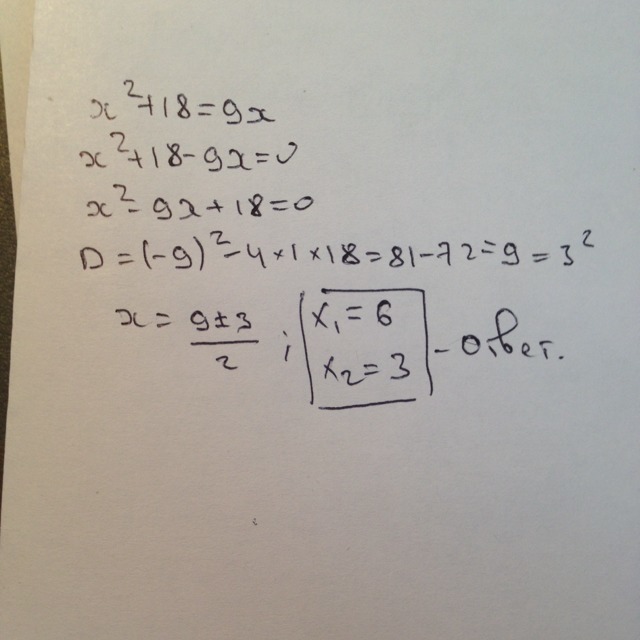 x²+18=9x
x²+18-9x=0
x²-9x+18=0
D=(-9)²-4×1×18=81-72=9=3²
x=9±3/2; x₁=6
x₂=3 - ответ.